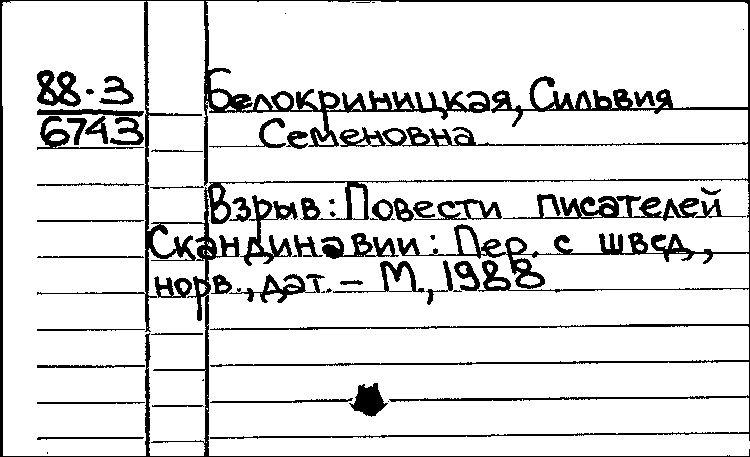 88-3
6743
Белокриницкая, Сильвия
Семеновна
Взрыв: Повести писателей
Скандинавии: Пер. с швед.,
норв., дат. – М., 1988